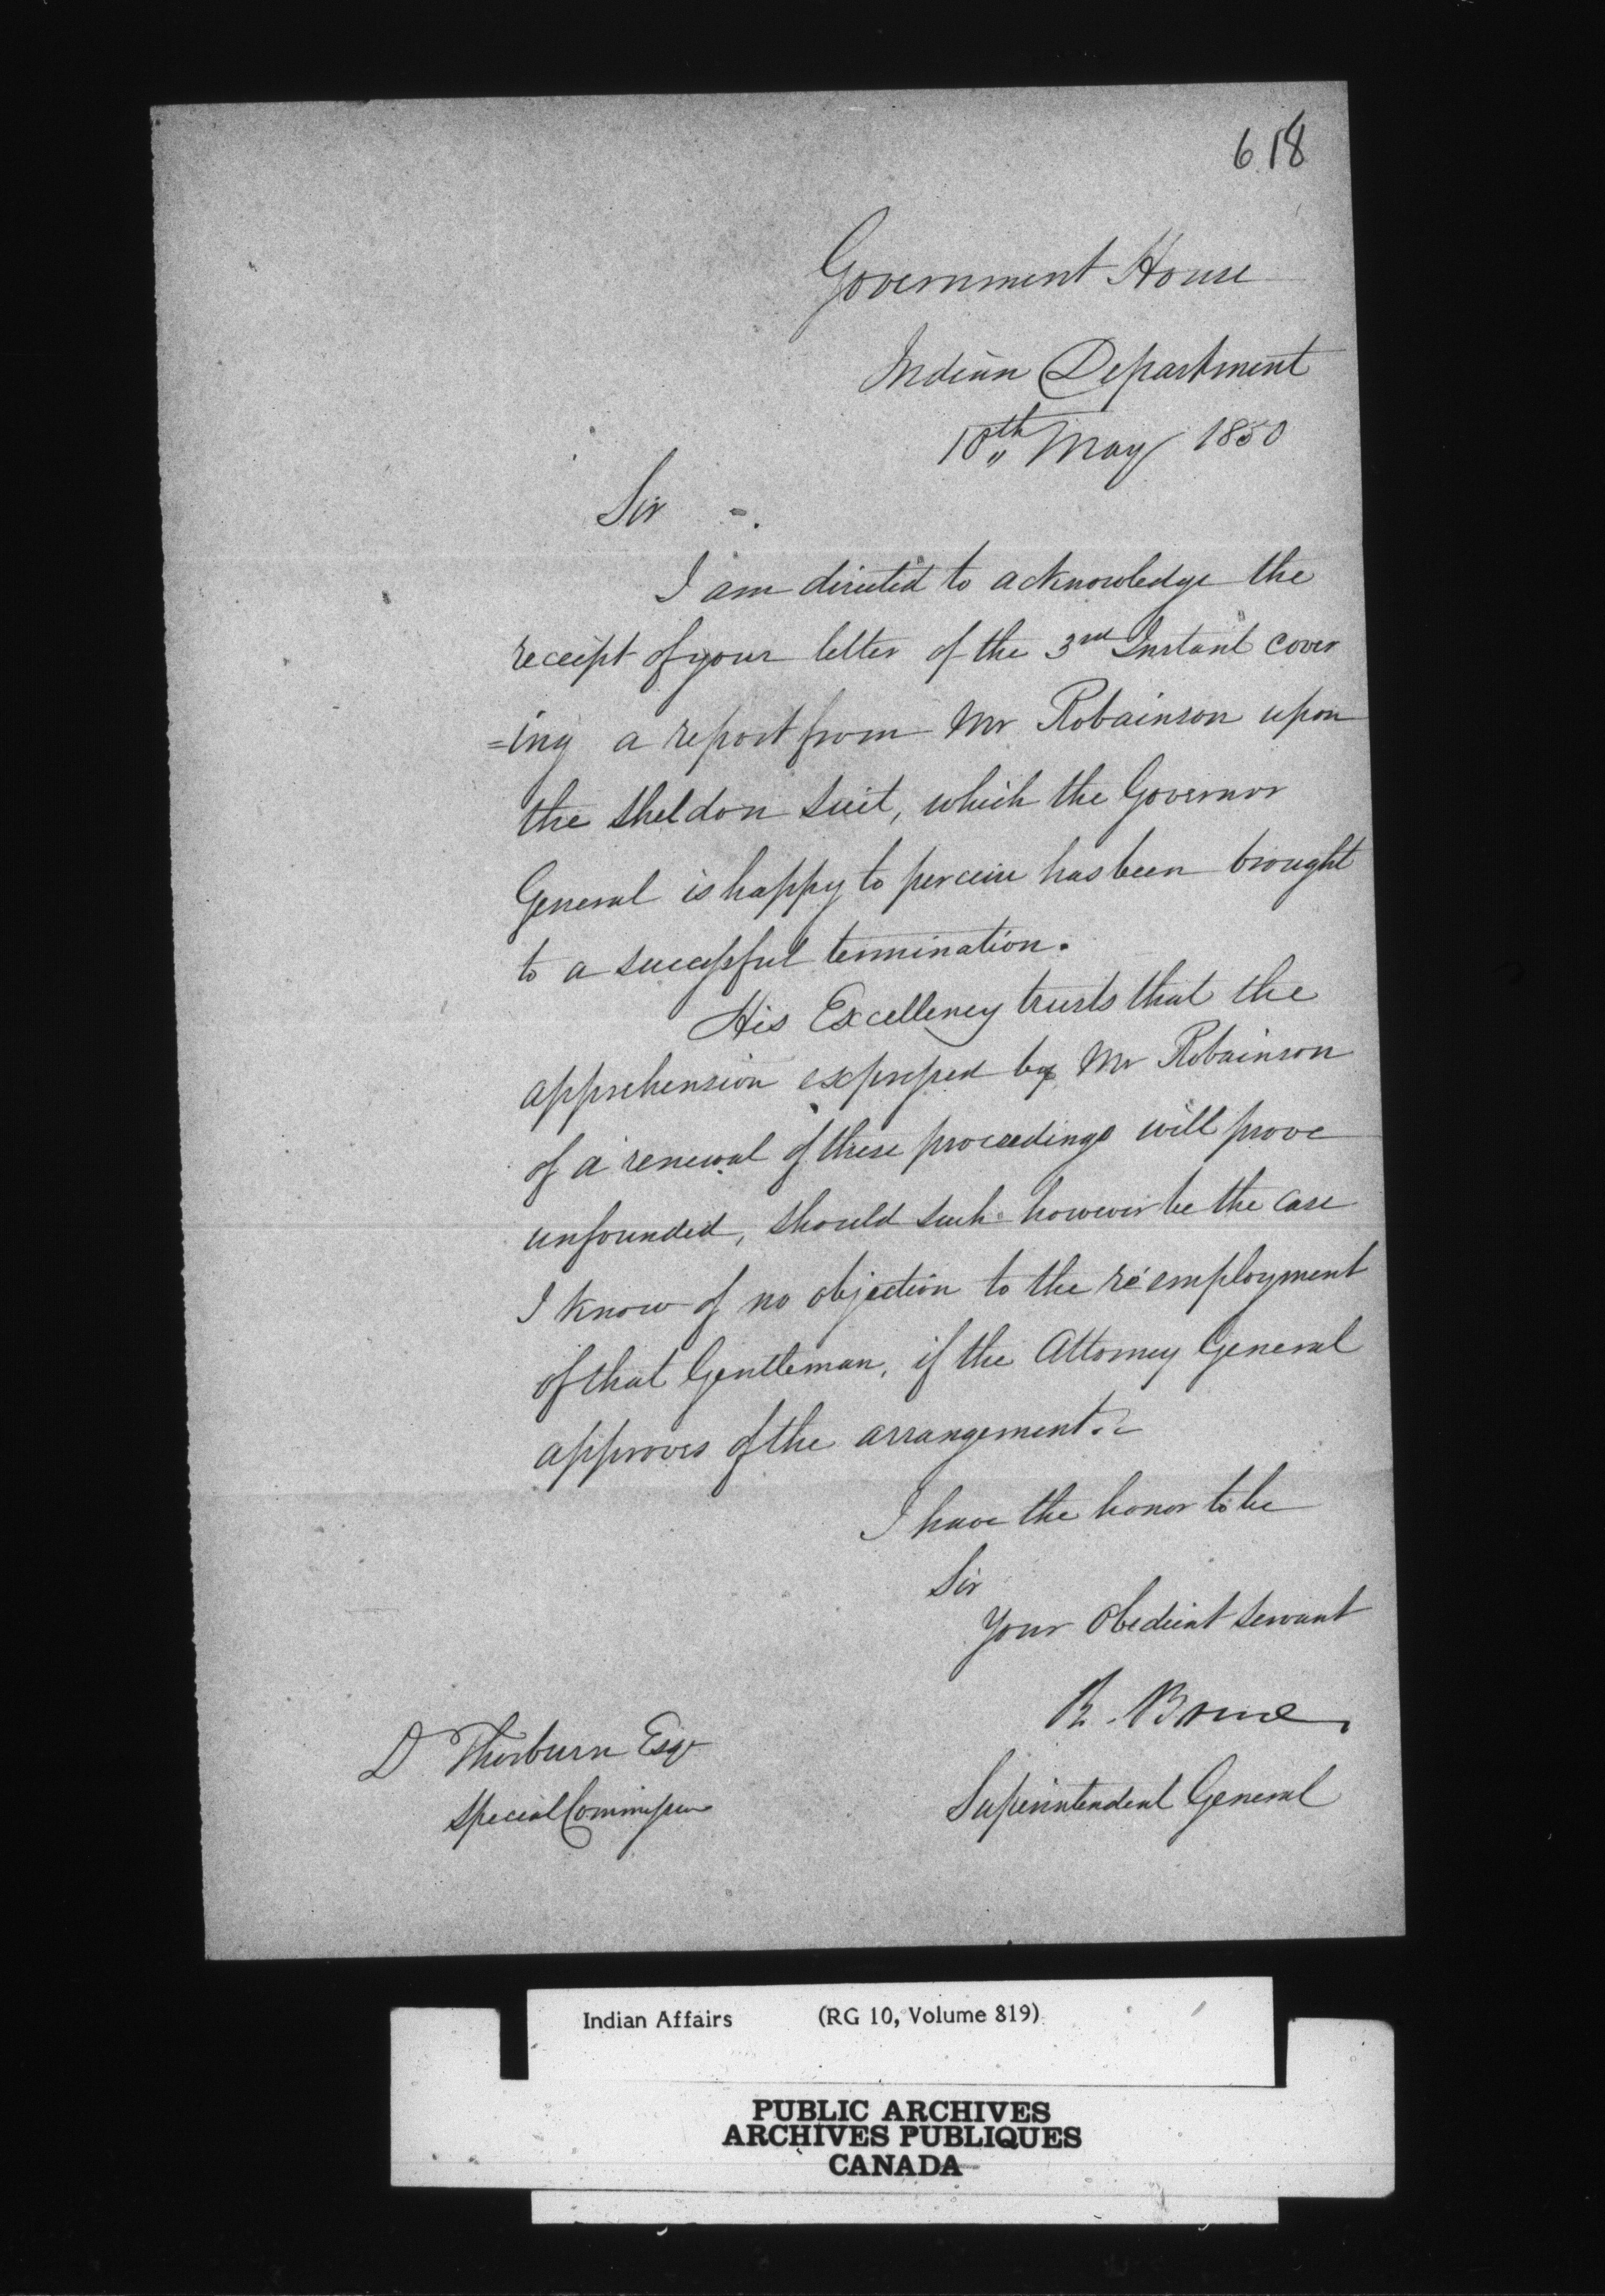 618
Government House
Indian Department
10th May 1850
Sir -.
I am directed to acknowledge the
receipt of your letter of the 3rd Instant cover
=ing a report from Mr Robainson upon
the Sheldon suit, which the Governor
General is happy to perceive has been brought
to a successful termination.
His Excellency trusts that the
apprehension expressed by Mr Robainson
of a renewal of these proceedings will prove
unfounded, should such however be the case
I know of no objection to the reemployment
of that Gentleman, if the Attorney General
approves of the arrangement.
I have the honor to be
Sir
Your Obedient servant
R. Bruce
Superintendent General
D Thorburn Esqr
Special Commissioner
Indian Affairs (RG 10, Volume 819)
PUBLIC ARCHIVES
ARCHIVES PUBLIQUES
CANADA